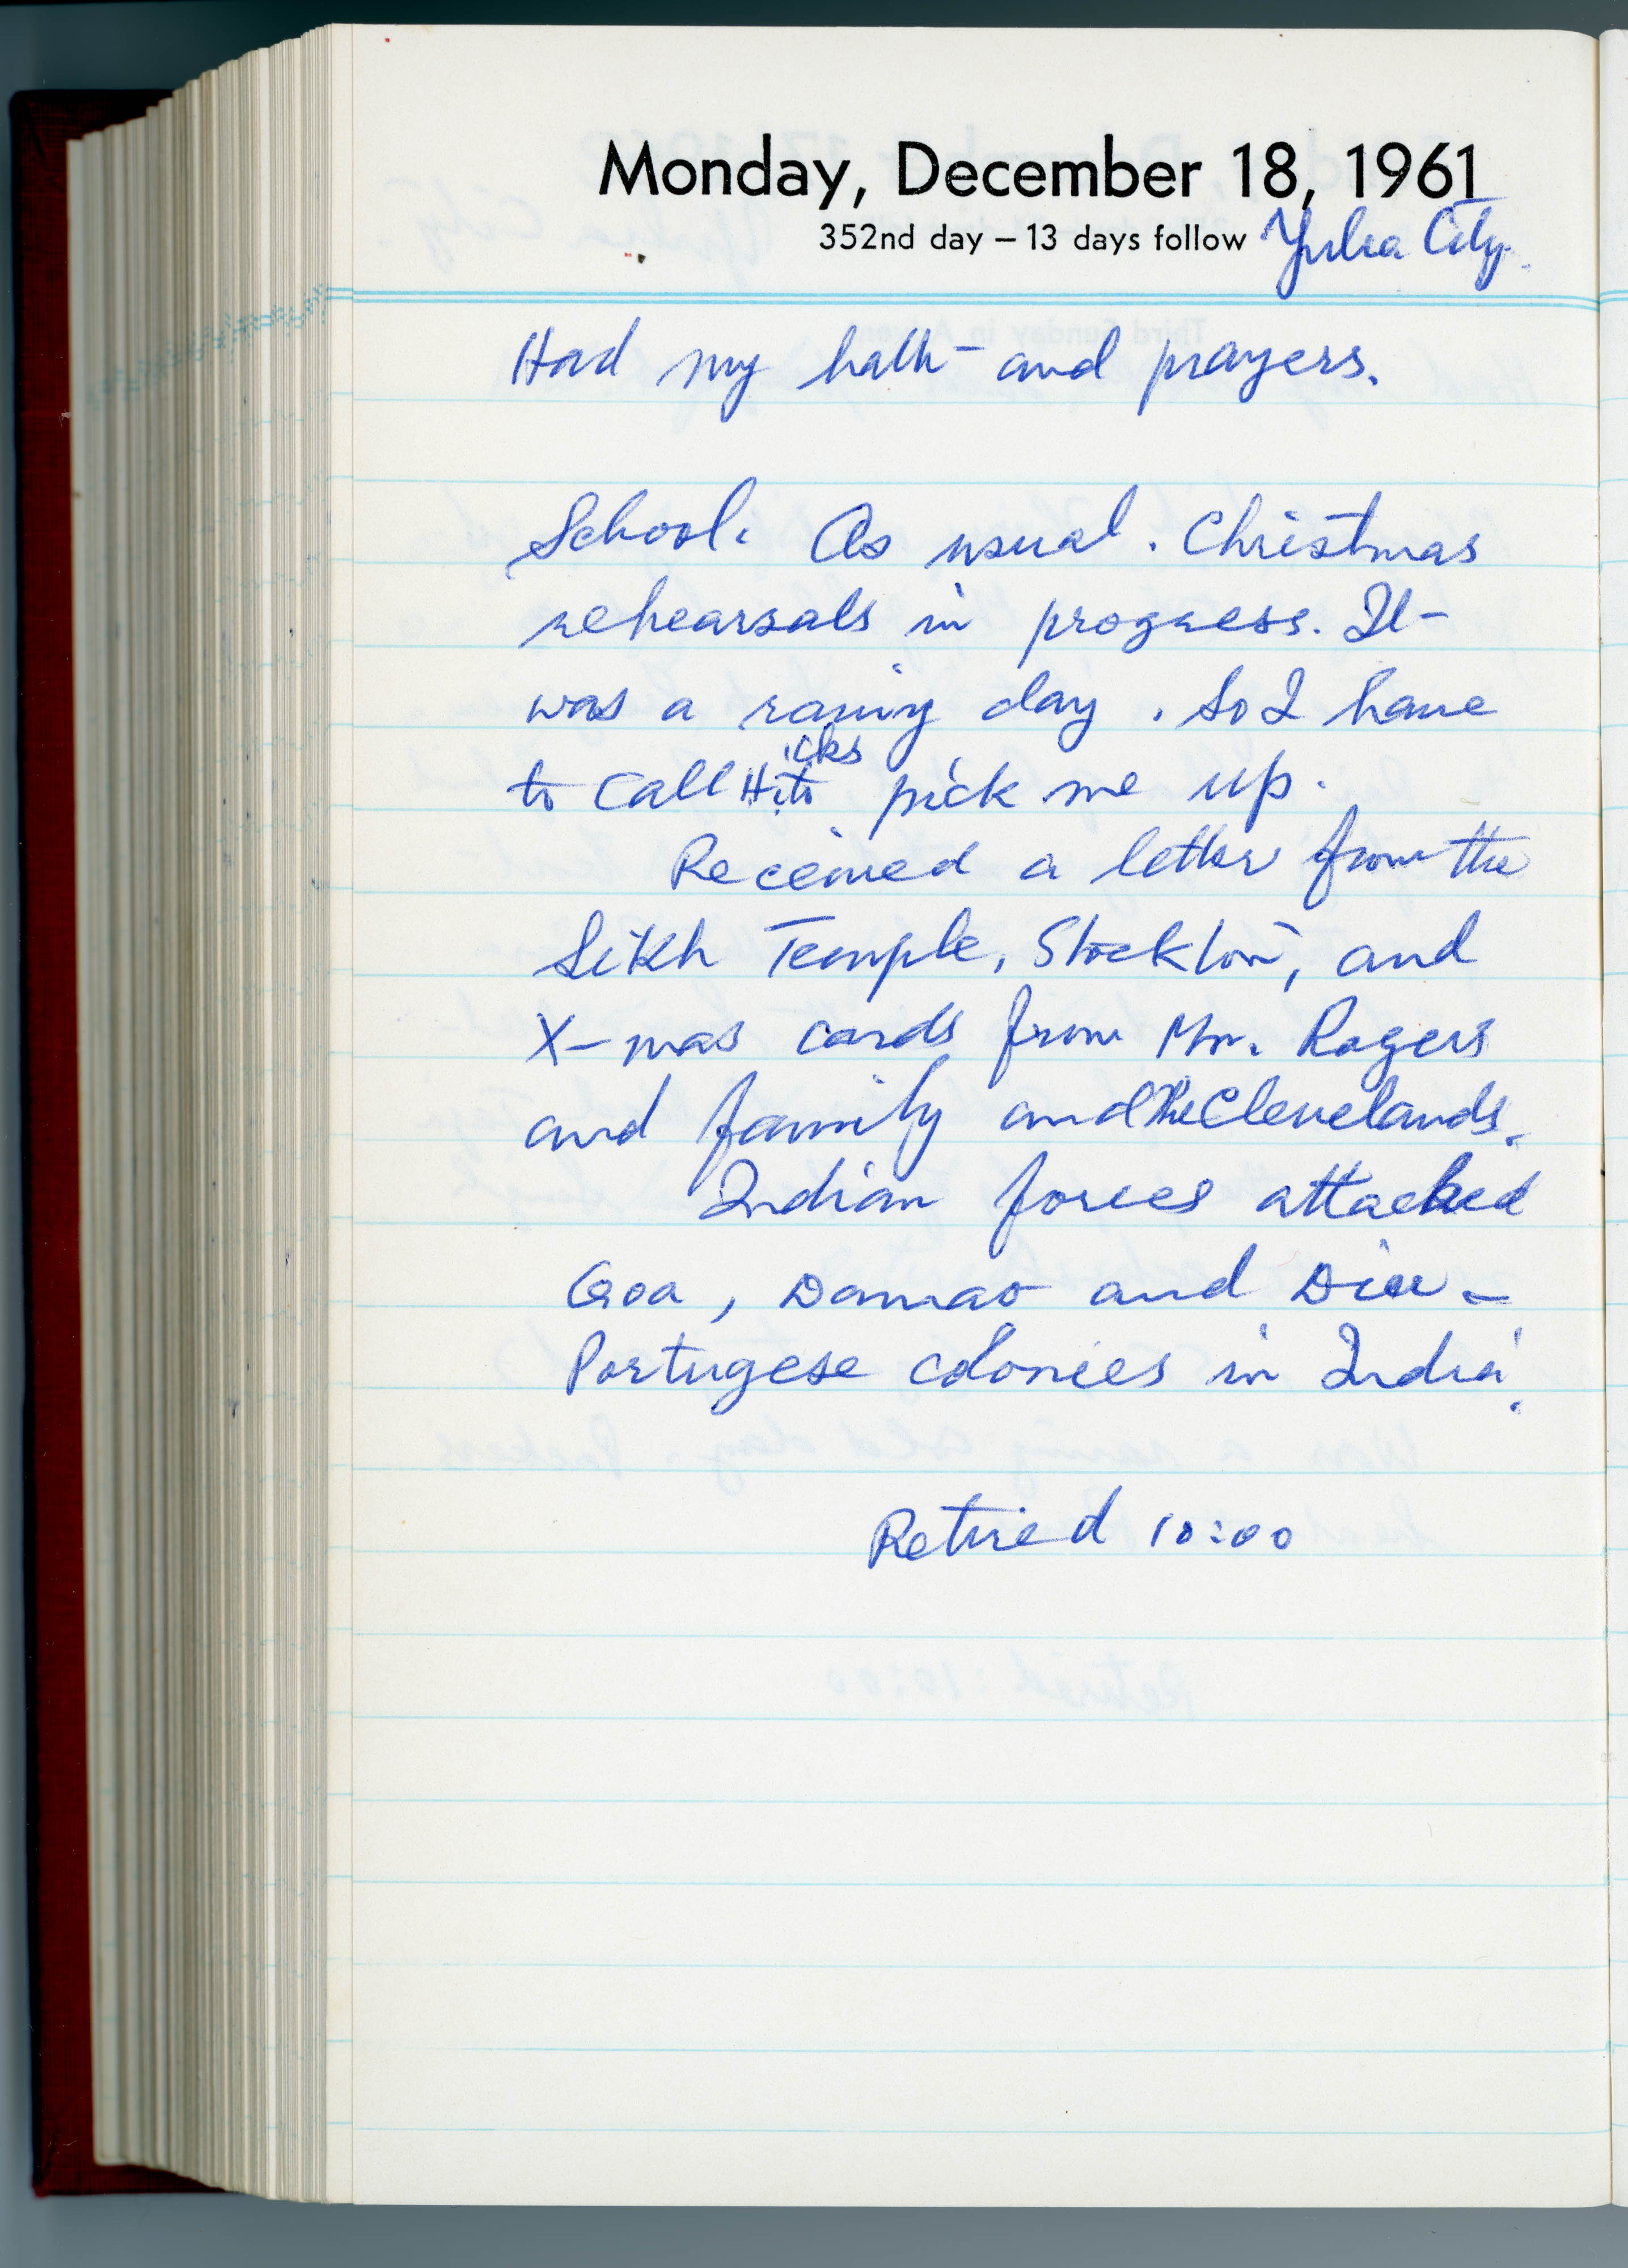 Monday, December 18, 1961
352nd day – 13 days follow Yuba City.
Had my bath and prayers.
School. As usual. Christmas
rehearsals in progress. It
was a rainy day. So I have
to call Hicks to pick me up.
Received a letter from the
Sikh Temple, Stockton, and
X-mas cards from Mr. Rogers
and family and the Clevelands.
Indian forces attacked
Goa, Damao and Diu –
Portugese colonies in India.
Retired 10:00